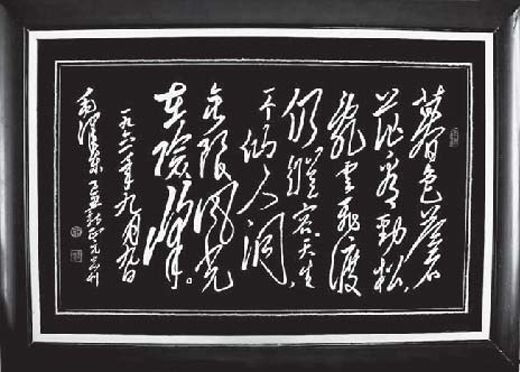 暮色蒼
茫看勁松,
亂雲飛渡
仍從容。天生
一个仙人洞,
無限風光
在險峰。
一九六一年九月九日
毛澤東